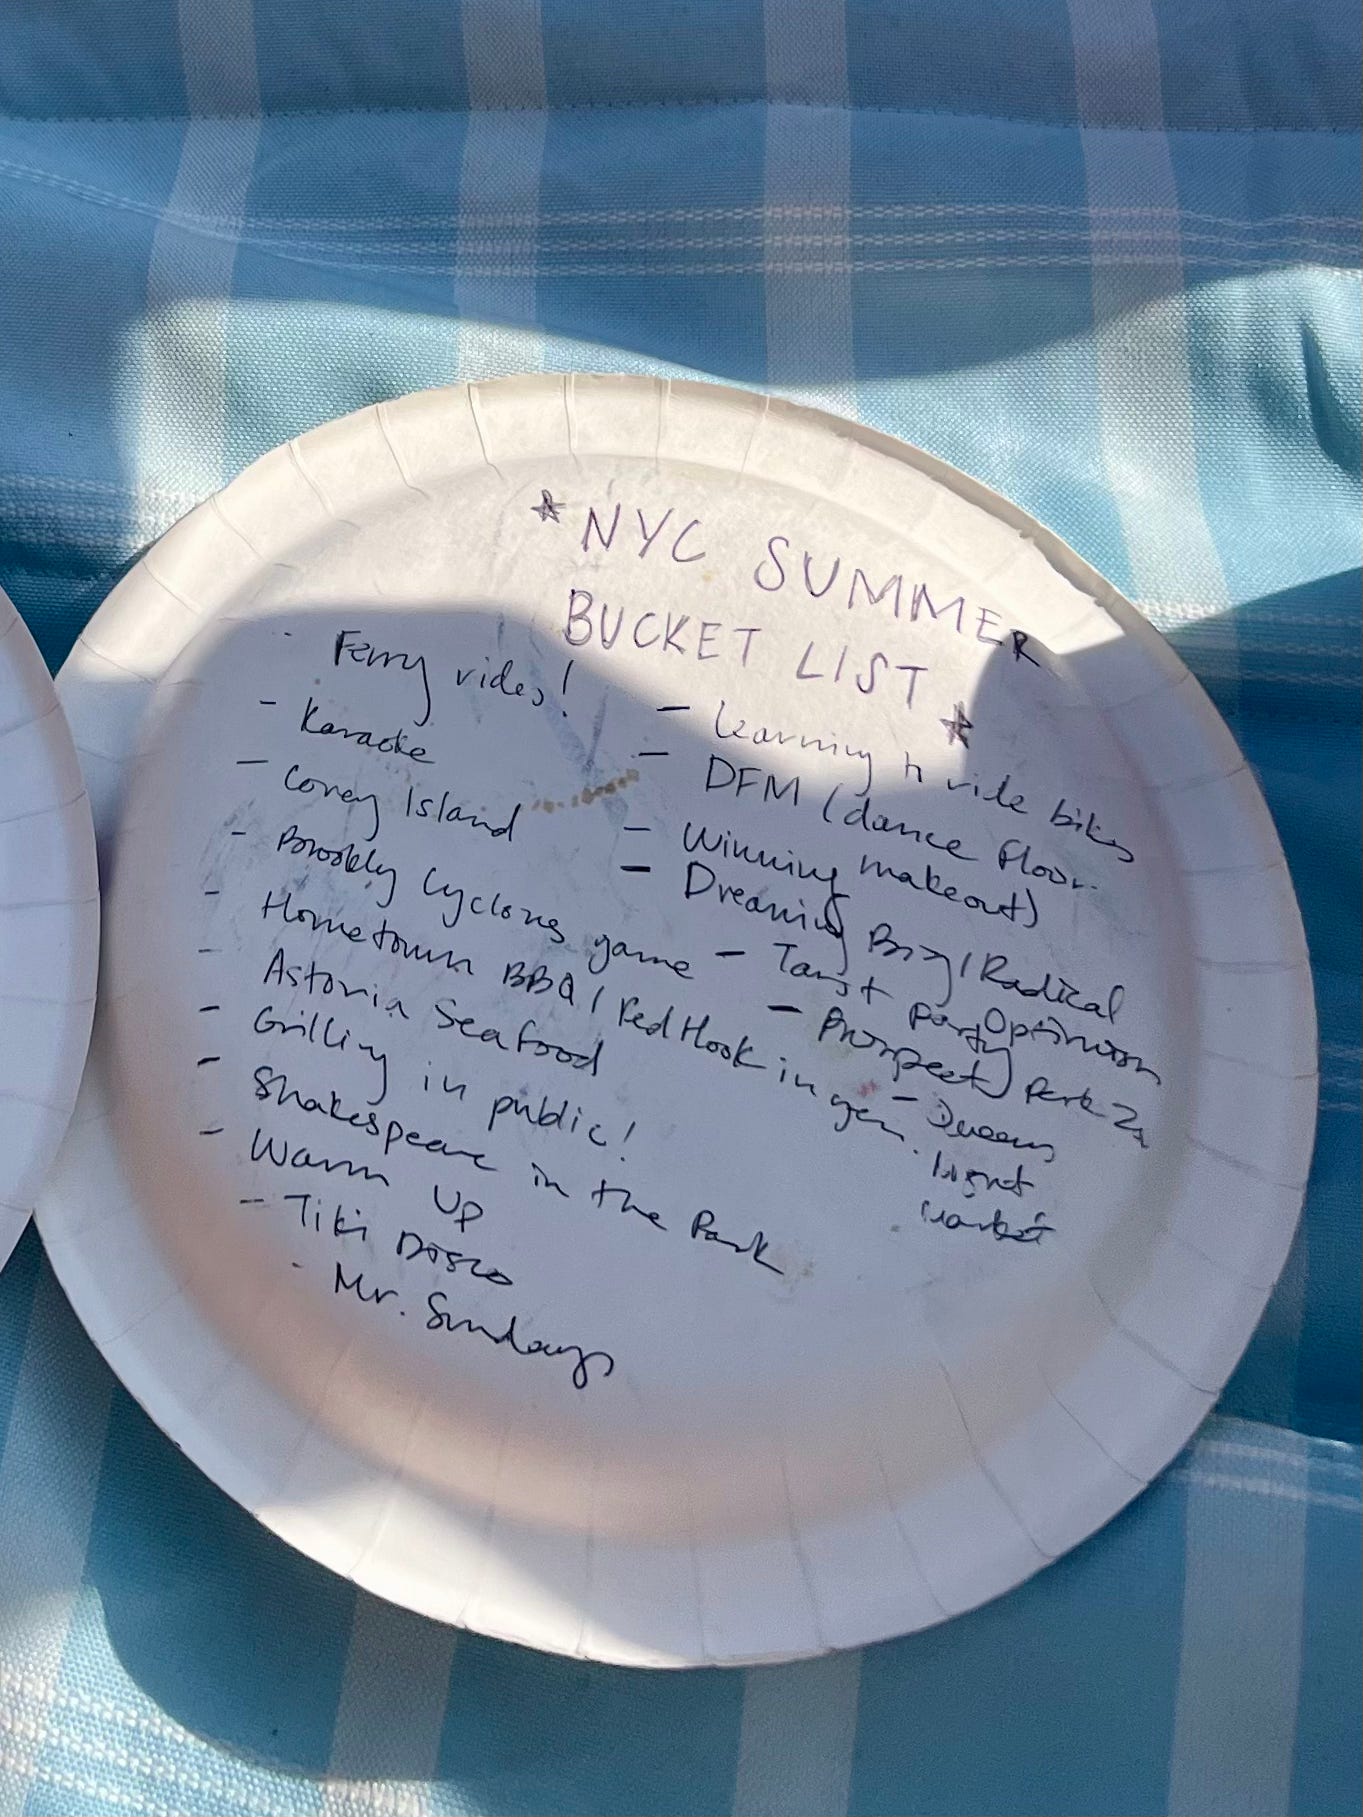 *NYC SUMMER
BUCKET LIST*
- Ferry rides!
- Karaoke
- Coney Island
- Brookly Cyclones game
- Hometown BBQ / Red Hook in gen.
- Astoria Seafood
- Grilling in public!
- Shakespeare in the Park
- Warm Up
- Tiki Disco
- Mr. Sundays
- learning to ride bikes
- DFM (dance floor
makeout)
- Winning
- Dreaming Big / Radical
Optimism
- party
- Prospect Park Zoo
- Queens
Night
Market